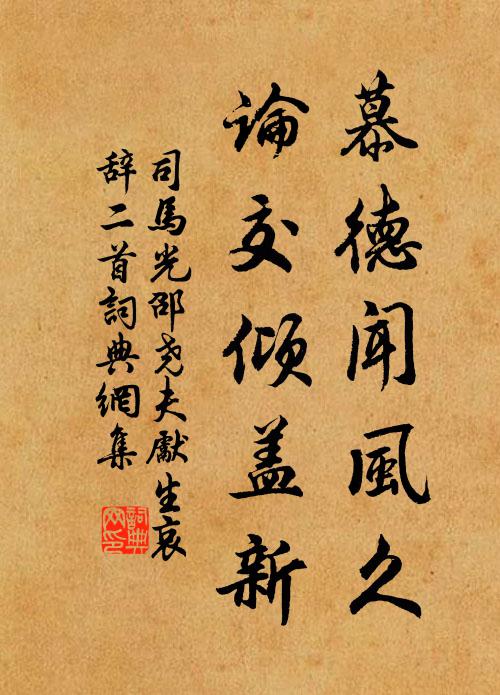 慕德聞風久
論交傾盖新
司馬光邵尭夫獻生哀
辞二首詞典網集
詞典網印